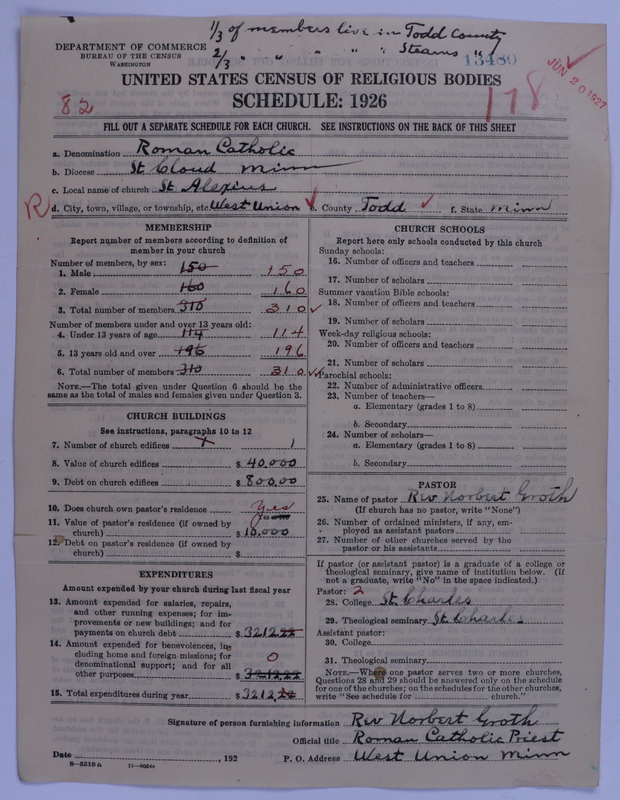 1/3 of members live in Todd County
2/3 " " " " Stearns "
DEPARTMENT OF COMMERCE
BUREAU OF THE CENSUS
WASHINGTON
13480
JUN 20 1927
UNITED STATES CENSUS OF RELIGIOUS BODIES
82
SCHEDULE: 1926
178
FILL OUT A SEPARATE SCHEDULE FOR EACH CHURCH. SEE INSTRUCTIONS ON THE BACK OF THIS SHEET
a. Denomination Roman Catholic
b. Diocese St Cloud Minn
c. Local name of church St Alexius
R d. City, town, village, or township, etc. West Union ✓ e. County Todd ✓ f. State Minn
MEMBERSHIP
Report number of members according to definition of
member in your church
Number of members, by sex:
1. Male 150 150
2. Female 160 160
3. Total number of members 310 310 ✓
Number of members under and over 13 years old:
4. Under 13 years of age 114 114
5. 13 years old and over 196 196
6. Total number of members 310 310 ✓
NOTE.—The total given under Question 6 should be the
same as the total of males and females given under Question 3.
CHURCH BUILDINGS
See instructions, paragraphs 10 to 12
7. Number of church edifices 1
8. Value of church edifices $ 40,000
9. Debt on church edifices $ 800.00
10. Does church own pastor's residence yes
Yes or No
11. Value of pastor's residence (if owned by
church) $ 10,000
12. Debt on pastor's residence (if owned by
church) $
EXPENDITURES
Amount expended by your church during last fiscal year
13. Amount expended for salaries, repairs,
and other running expenses; for im-
provements or new buildings; and for
payments on church debt $ 3212.22
14. Amount expended for benevolences, in-
cluding home and foreign missions; for
denominational support; and for all 0
other purposes $ 3212.22
15. Total expenditures during year $ 3212.22
CHURCH SCHOOLS
Report here only schools conducted by this church
Sunday schools:
16. Number of officers and teachers
17. Number of scholars
Summer vacation Bible schools:
18. Number of officers and teachers
19. Number of scholars
Week-day religious schools:
20. Number of officers and teachers
21. Number of scholars
Parochial schools:
22. Number of administrative officers
23. Number of teachers—
a. Elementary (grades 1 to 8)
b. Secondary
24. Number of scholars—
a. Elementary (grades 1 to 8)
b. Secondary
PASTOR
25. Name of pastor Rev Norbert Groth
(If church has no pastor, write "None")
26. Number of ordained ministers, if any, em-
ployed as assistant pastors
27. Number of other churches served by the
pastor or his assistants
If pastor (or assistant pastor) is a graduate of a college or
theological seminary, give name of institution below. (If
not a graduate, write "No" in the space indicated.)
Pastor: 2
28. College St Charles
29. Theological seminary St Charles
Assistant pastor:
30. College
31. Theological seminary
NOTE.—Where one pastor serves two or more churches,
Questions 28 and 29 should be answered only on the schedule
for one of the churches; on the schedules for the other churches,
write "See schedule for church."
Signature of person furnishing information Rev Norbert Groth
Official title Roman Catholic Priest
Date , 192 P. O. Address West Union Minn
8—5518 a 11—9054